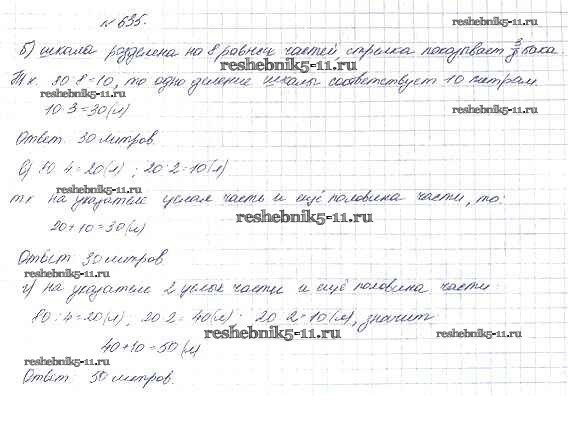 № 635.
б) шкала разделена на 8 равных частей стрелка показывает 3/8 бака.
reshebnik5-11.ru
Т.к. 80:8=10, то одно деление шкалы соответствует 10 литрам.
reshebnik5-11.ru
reshebnik5-11.ru
10·3=30(л)
Ответ 30 литров.
в) 80:4=20(л); 20:2=10(л)
reshebnik5-11.ru
тк на указателе целая часть и ещё половина части, то:
reshebnik5-11.ru
20+10=30(л)
Ответ 30 литров
reshebnik5-11.ru
г) на указателе 2 целые части и ещё половина части
80:4=20(л); 20·2=40(л) 20:2=10(л), значит
reshebnik5-11.ru
reshebnik5-11.ru
40+10=50(л)
reshebnik5-11.ru
Ответ: 50 литров.